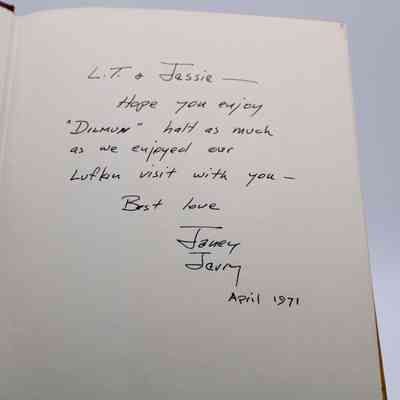 L.T. & Jessie —
Hope you enjoy
"DILMUN" half as much
as we enjoyed our
Lufkin visit with you —
Best love
Janey
Jerry
April 1971